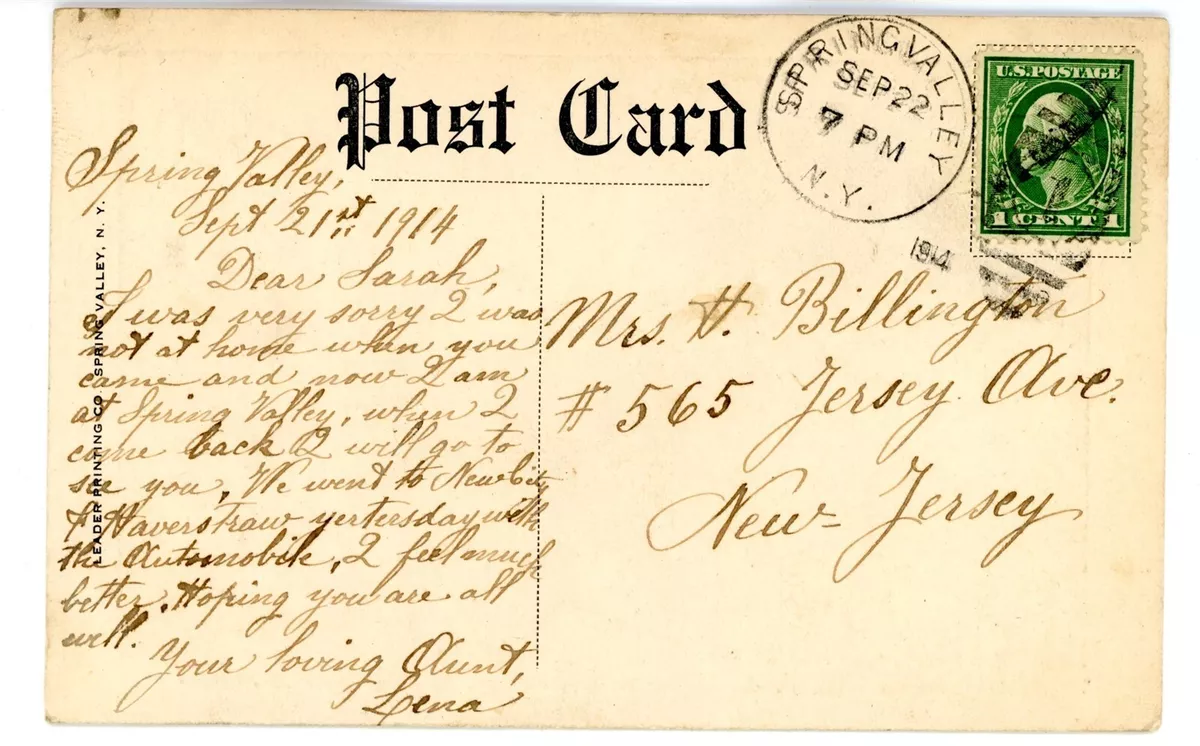 Post Card
SPRING VALLEY
SEP 22
7 PM
N.Y.
1914
U.S. POSTAGE
1 CENT 1
LEADER PRINTING CO. SPRING VALLEY, N. Y.
Spring Valley,
Sept 21st, 1914
Dear Sarah,
I was very sorry I was
not at home when you
came and now I am
at Spring Valley, when I
come back I will go to
see you, We went to New City
& Haverstraw yertersday with
the Automobile, I feel much
better. Hoping you are all
well.
Your loving Aunt,
Lena
Mrs. H. Billington
# 565 Jersey Ave.
New- Jersey